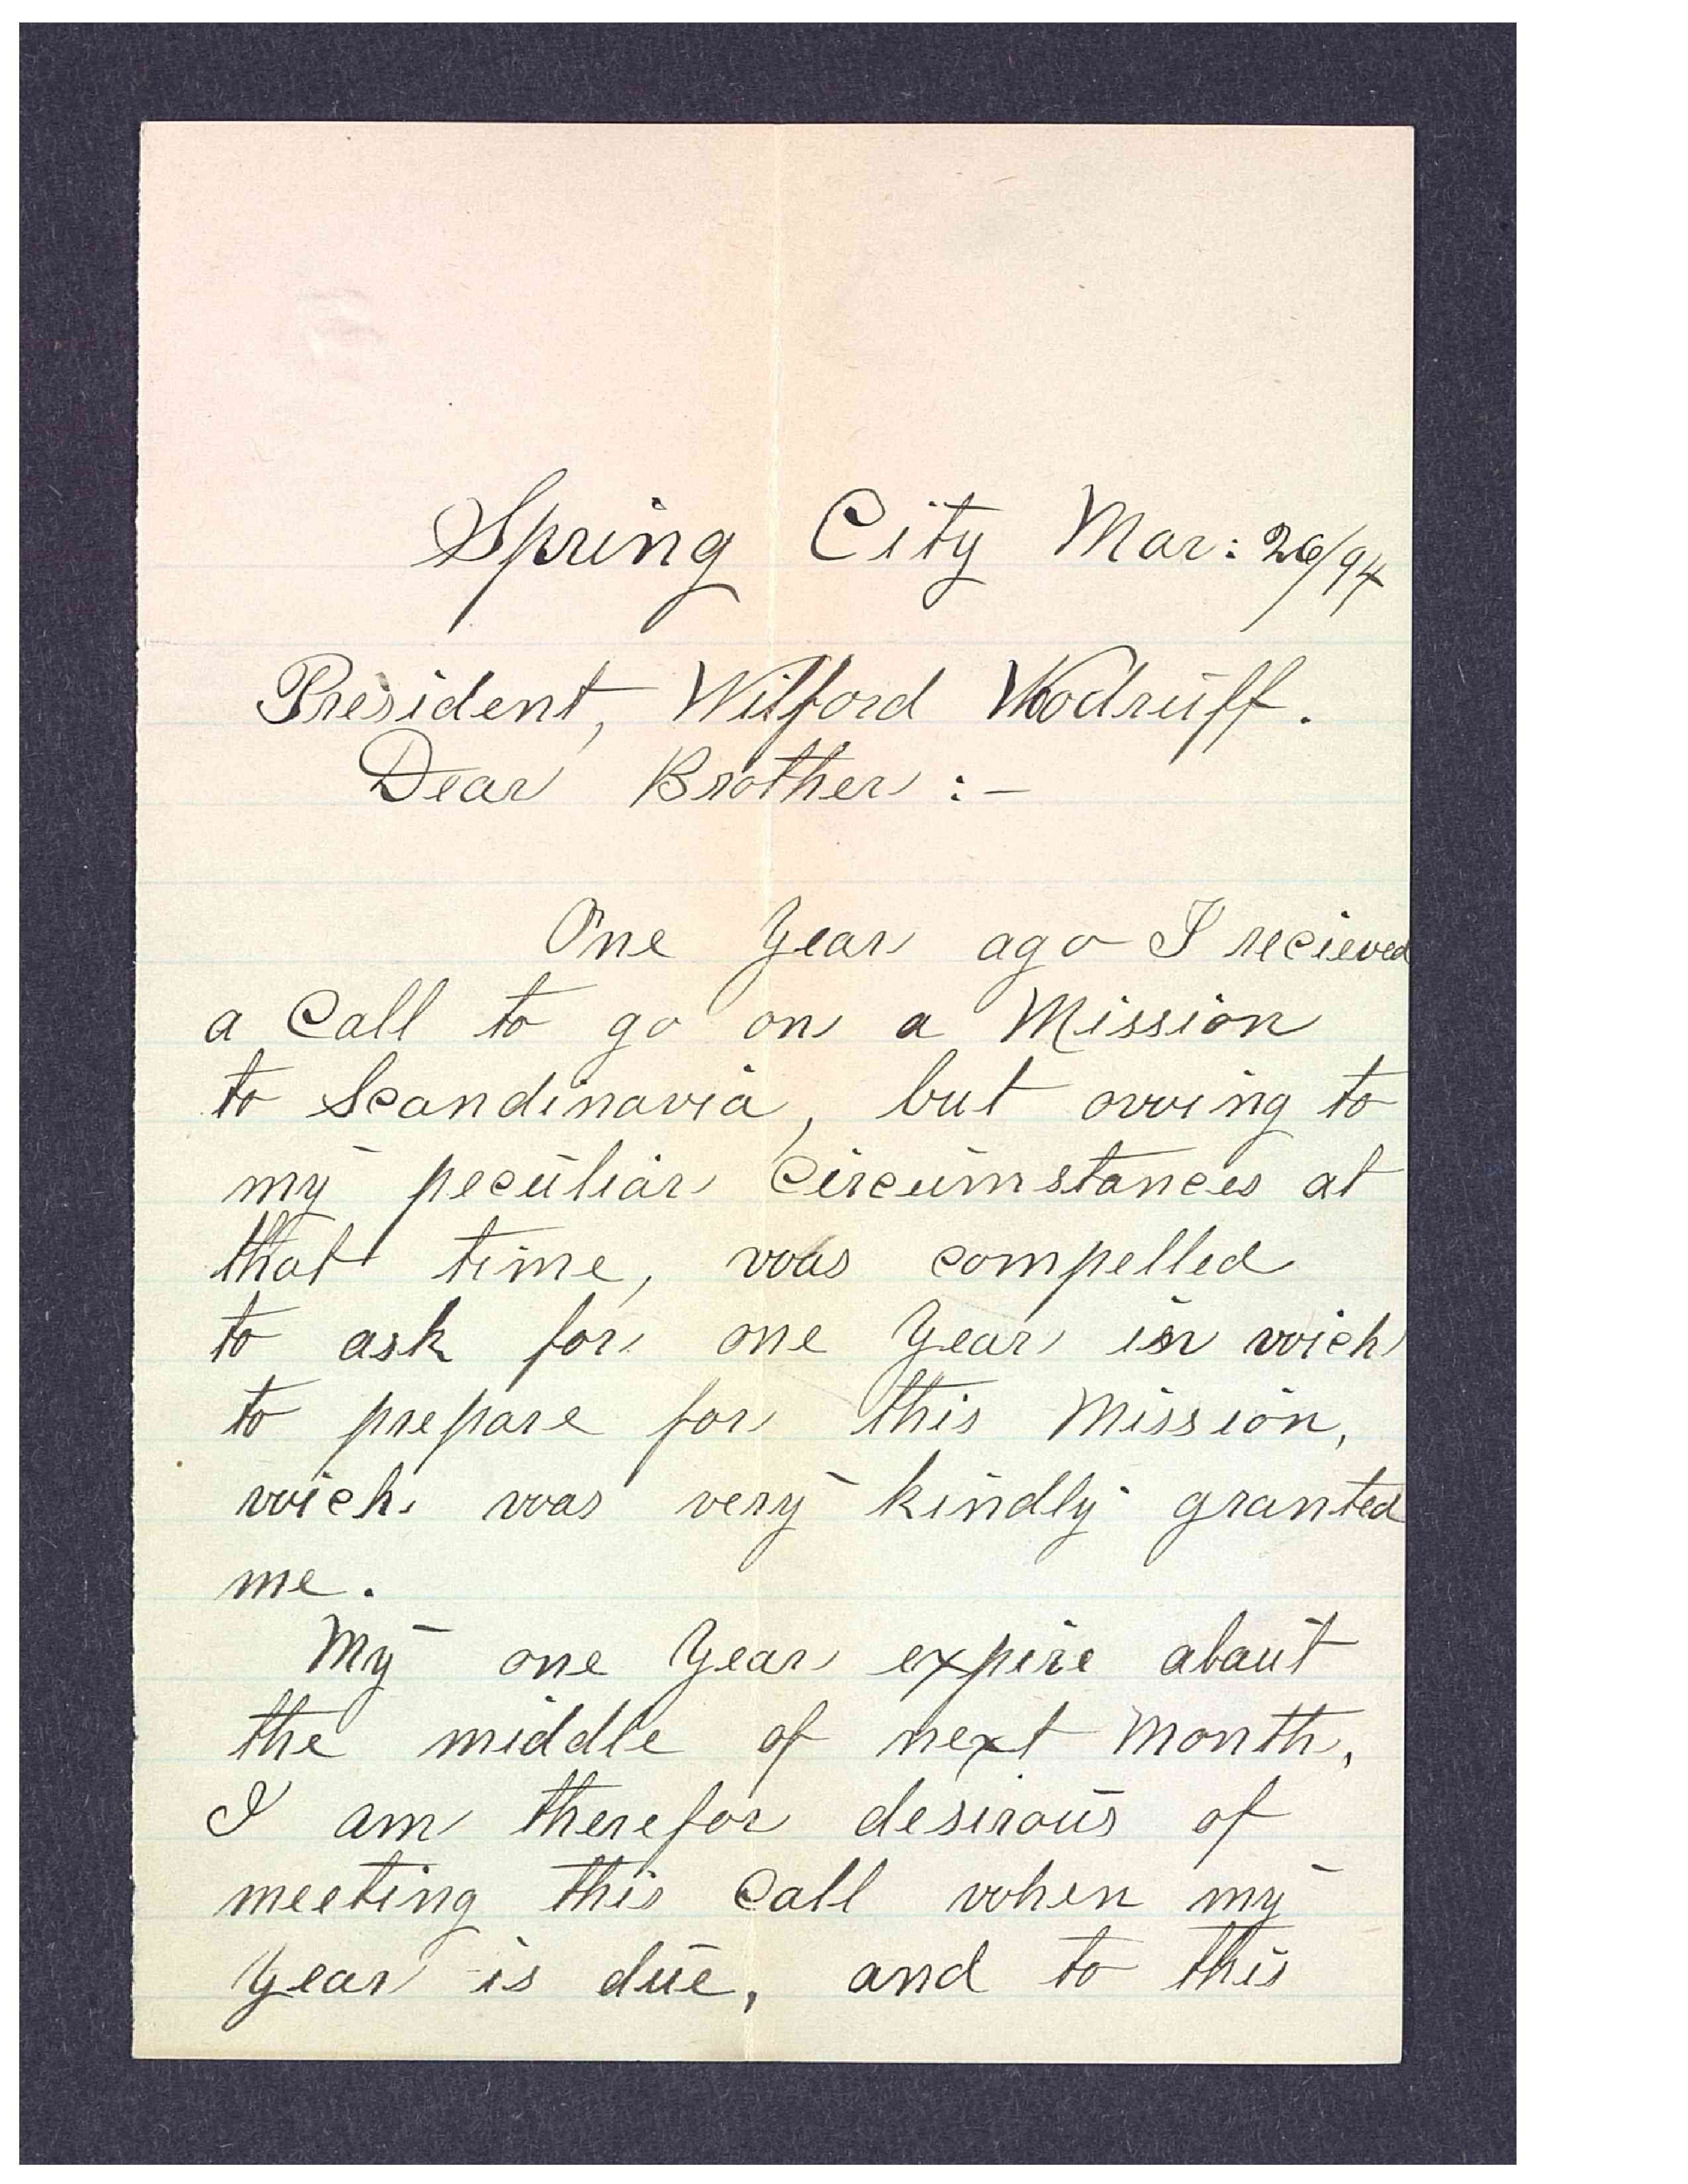 Spring City Mar: 26/94
President, Wilford Woodruff.
Dear Brother :-
One Year ago I recieved
a Call to go on a Mission
to Scandinavia, but owing to
my peculiar Circumstances at
that time, was compelled
to ask for one Year in wich
to prepare for this Mission,
wich was very kindly granted
me.
My one Year expire about
the middle of next Month,
I am therefor desirous of
meeting this Call when my
Year is due, and to this